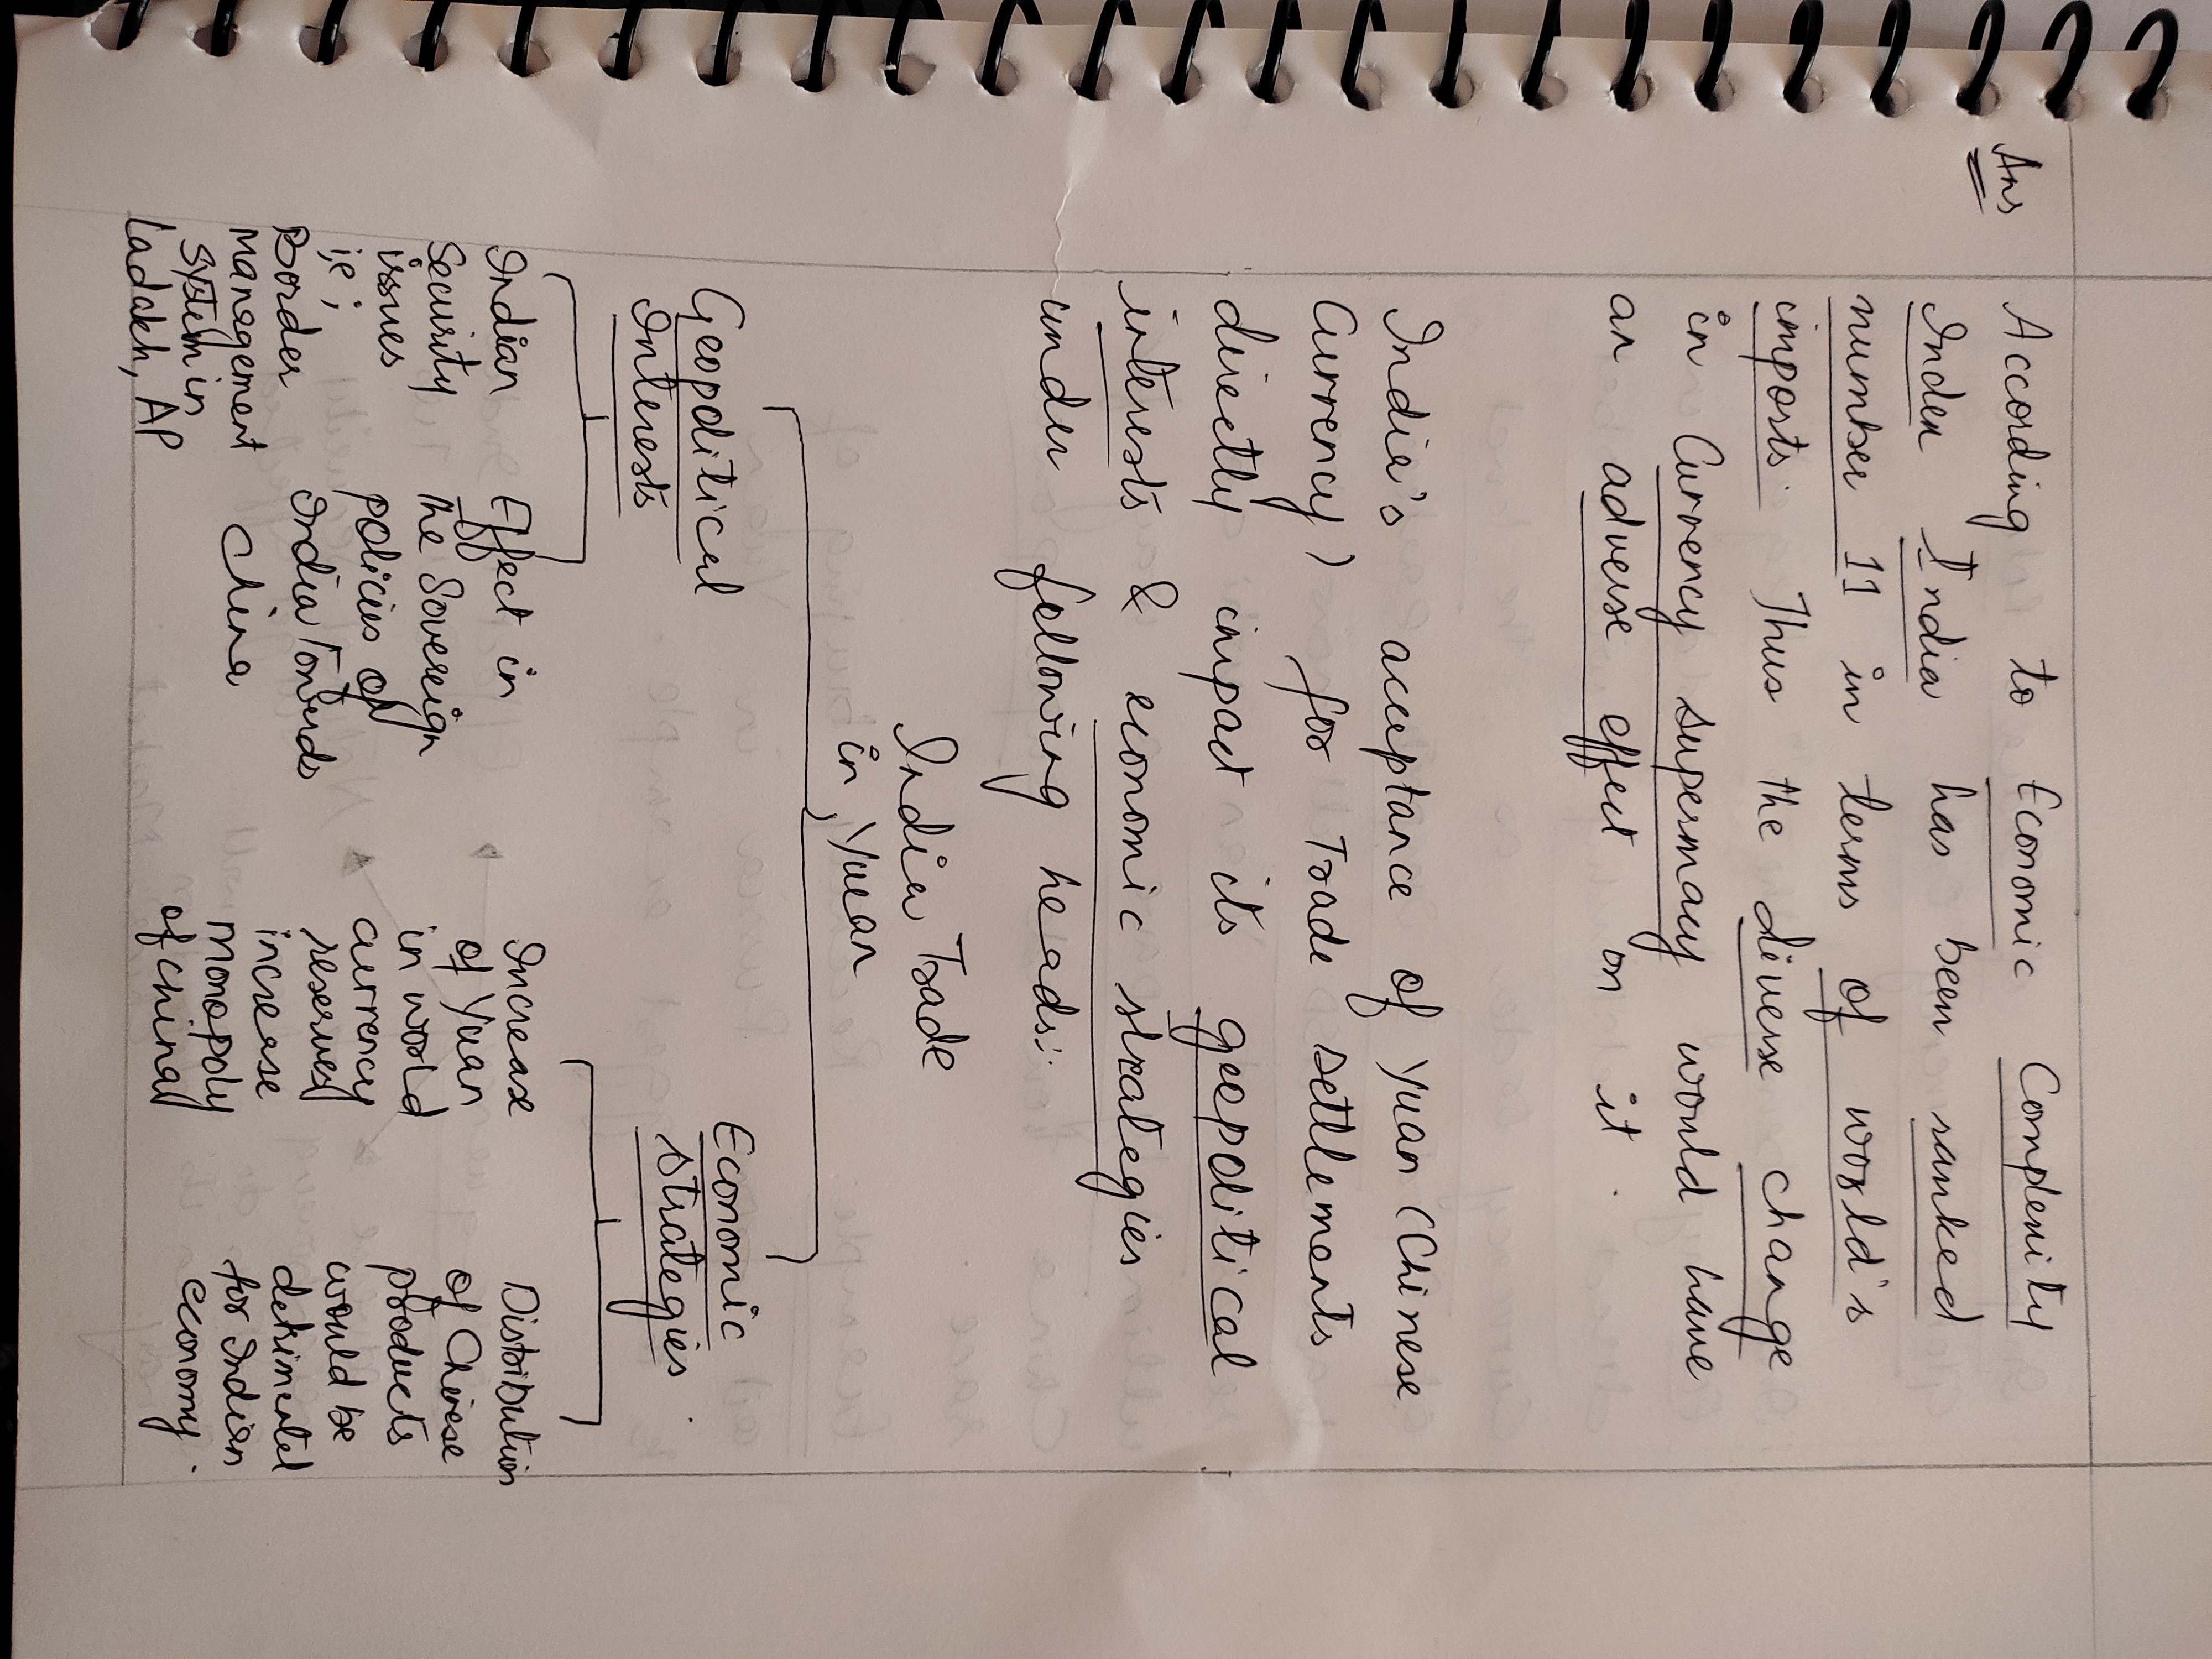 Ans
According to Economic Complexity
Index India has been ranked
number 11 in terms of world's
imports. Thus the diverse change
in currency supermacy would have
an adverse effect on it.
India's acceptance of Yuan (Chinese
Currency) for Trade settlements
directly impact its geopolitical
interests & economic strategies
under following heads:
India Trade
in Yuan
Geopolitical
Interests
Indian
Security
issues
ie;
Border
management
system in
Ladakh, AP
Effect in
the Sovereign
policies of
India Towards
China
Economic
strategies.
Increase
of Yuan
in world
currency
reserves
increase
monopoly
of china
Distribution
of Chinese
products
would be
detrimental
for Indian
economy.